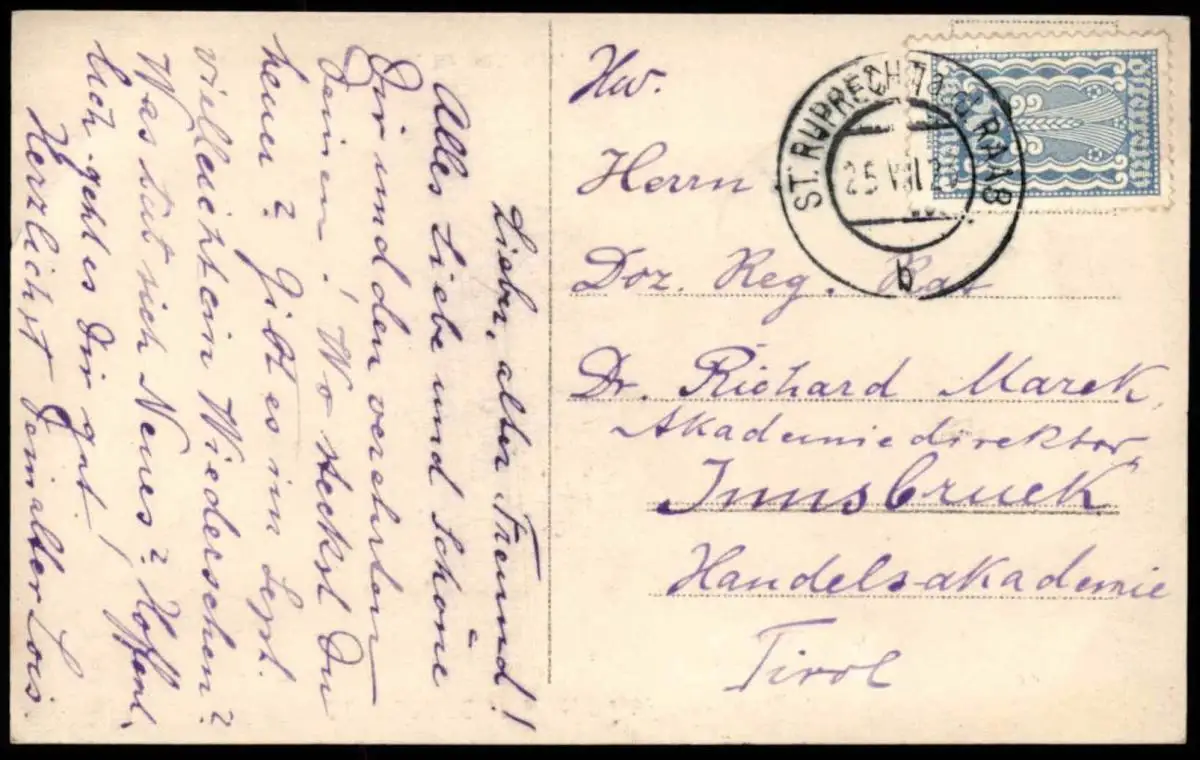 Lieber, alter Freund!
Alles Liebe und Schöne
Dir und den verehrten
Deinen! Wo steckst Du
heuer? Gibt es im Sept.
vielleicht ein Wiedersehen?
Was tut sich Neues? Hoffent,
lich geht es Dir gut!
Herzlichst Dein alter Lois.
Hw.
Herrn
Doz. Reg. Rat
Dr. Richard Marek,
Akademiedirektor
Innsbruck
Handelsakademie
Tirol
ST. RUPRECHT a.d. RAAB
25 VIII 2
b